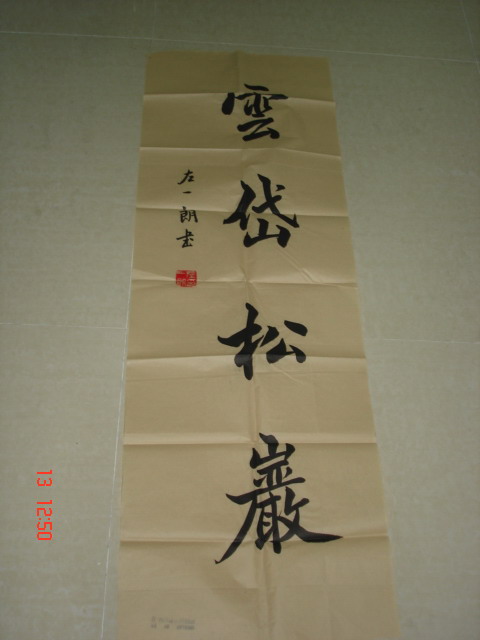 雲岱松巖
左一朗書
13 12:50